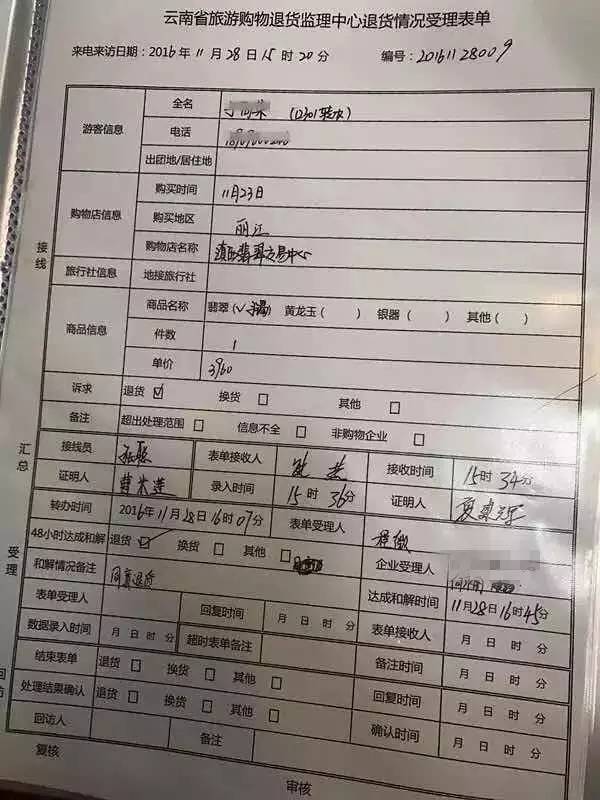 云南省旅游购物退货监理中心退货情况受理表单
来电来访日期：2016年11月28日15时20分 编号：20161128009
接线
游客信息 全名 (12301转办)
电话
出团地/居住地
购物店信息 购买时间 11月23日
购买地区 丽江
购物店名称 滇西翡翠交易中心
旅行社信息 地接旅行社
商品信息 商品名称 翡翠(√手镯) 黄龙玉( ) 银器( ) 其他( )
件数 1
单价 3960
诉求 退货☑ 换货□ 其他□
备注 超出处理范围□ 信息不全□ 非购物企业□
汇总
接线员 表单接收人 接收时间 15时34分
证明人 录入时间 15时36分 证明人
受理
转办时间 2016年11月28日16时07分 表单受理人
48小时达成和解 退货☑ 换货□ 其他□ 企业受理人
和解情况备注 同意退货 达成和解时间 11月28日16时45分
表单受理人 回复时间 月 日 时 分 表单接收人
数据录入时间 月 日 时 分 超时表单备注 备注时间 月 日 时 分
回访
结束表单 退货□ 换货□ 其他□ 回复时间 月 日 时 分
处理结果确认 退货□ 换货□ 其他□ 确认时间 月 日 时 分
回访人 备注 月 日 时 分
复核 审核